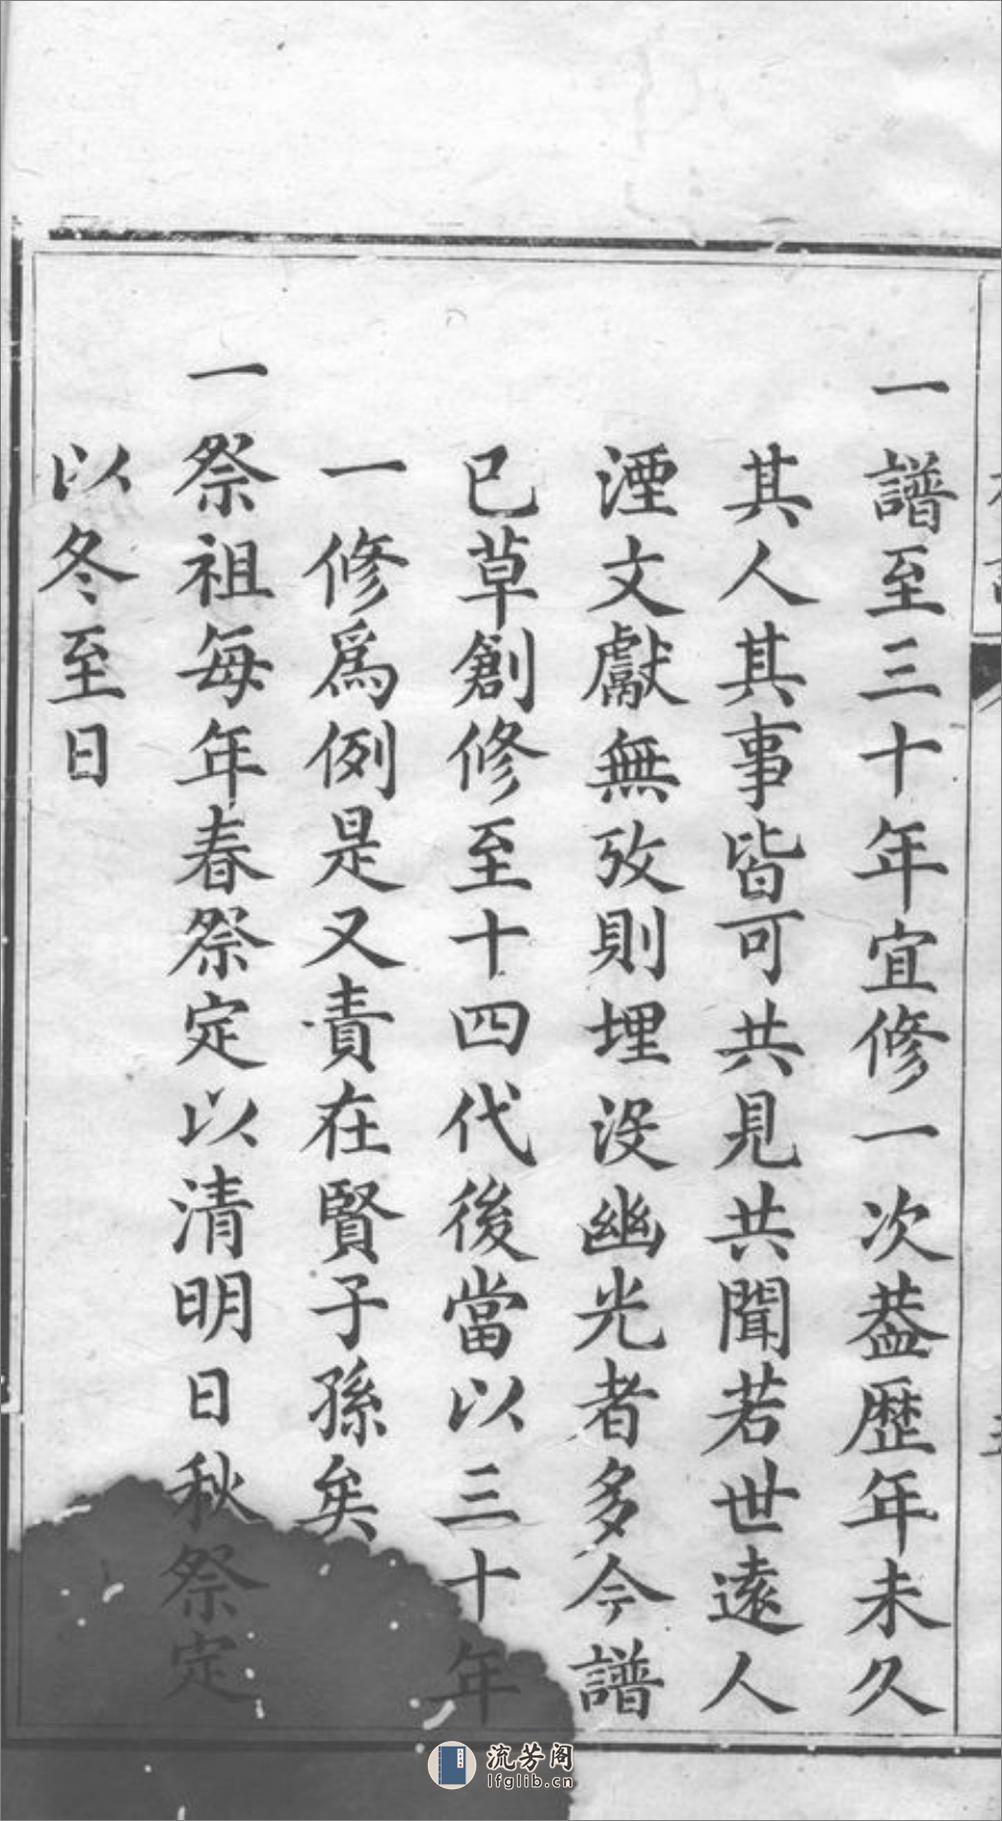 一譜至三十年宜修一次葢歴年未久
其人其事皆可共見共聞若世遠人
湮文獻無攷則埋没幽光者多今譜
已草創修至十四代後當以三十年
一修爲例是又責在賢子孫矣
一祭祖每年春祭定以清明日秋祭定
以冬至日
流芳阁
lfglib.cn